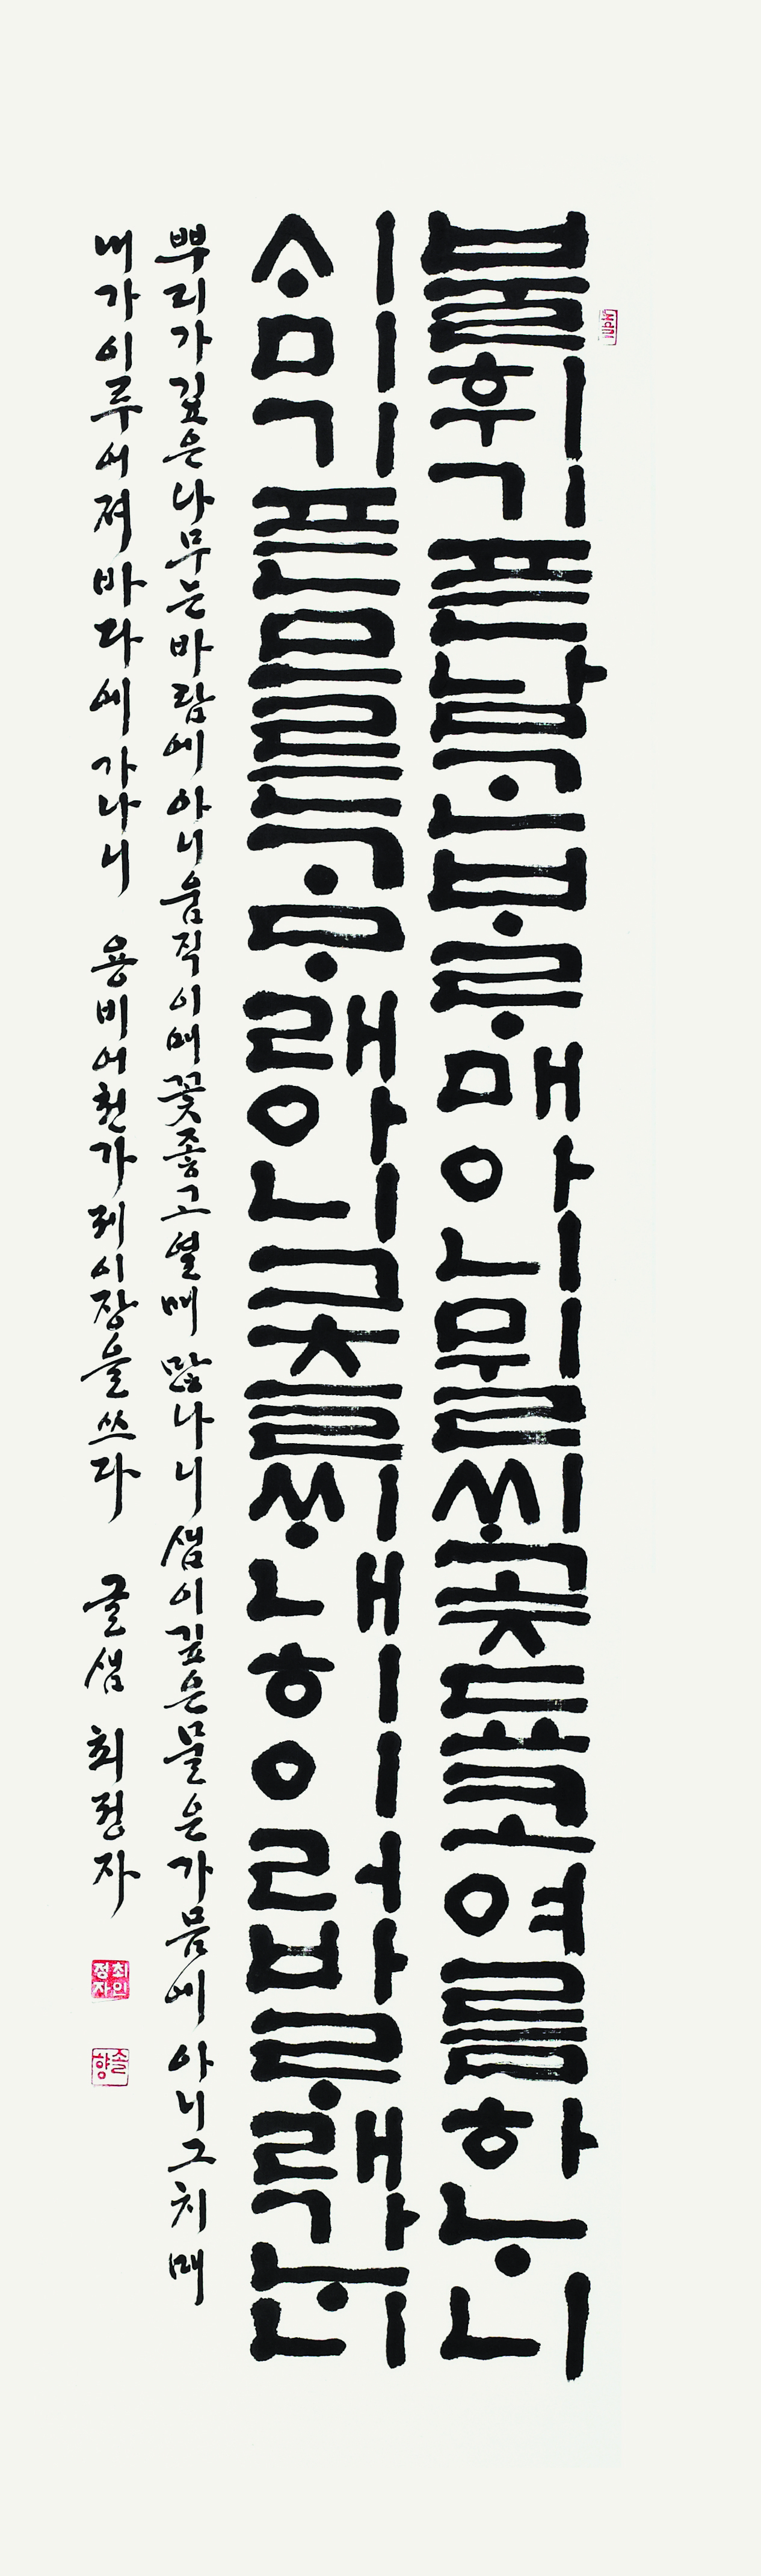 불휘기픈남ᄀᆞᆫᄇᆞᄅᆞ매아니뮐ᄊᆡ곶됴코여름하ᄂᆞ니
ᄉᆡ미기픈므른ᄀᆞᄆᆞ래아니그츨ᄊᆡ내히이러바ᄅᆞ래가ᄂᆞ니
뿌리가깊은나무는바람에아니움직이매꽃좋고열매 많나니샘이깊은물은가뭄에아니그치매
내가이루어져바다에가나니 용비어천가제이장을쓰다 글샘 최정자
최정자인
솔향